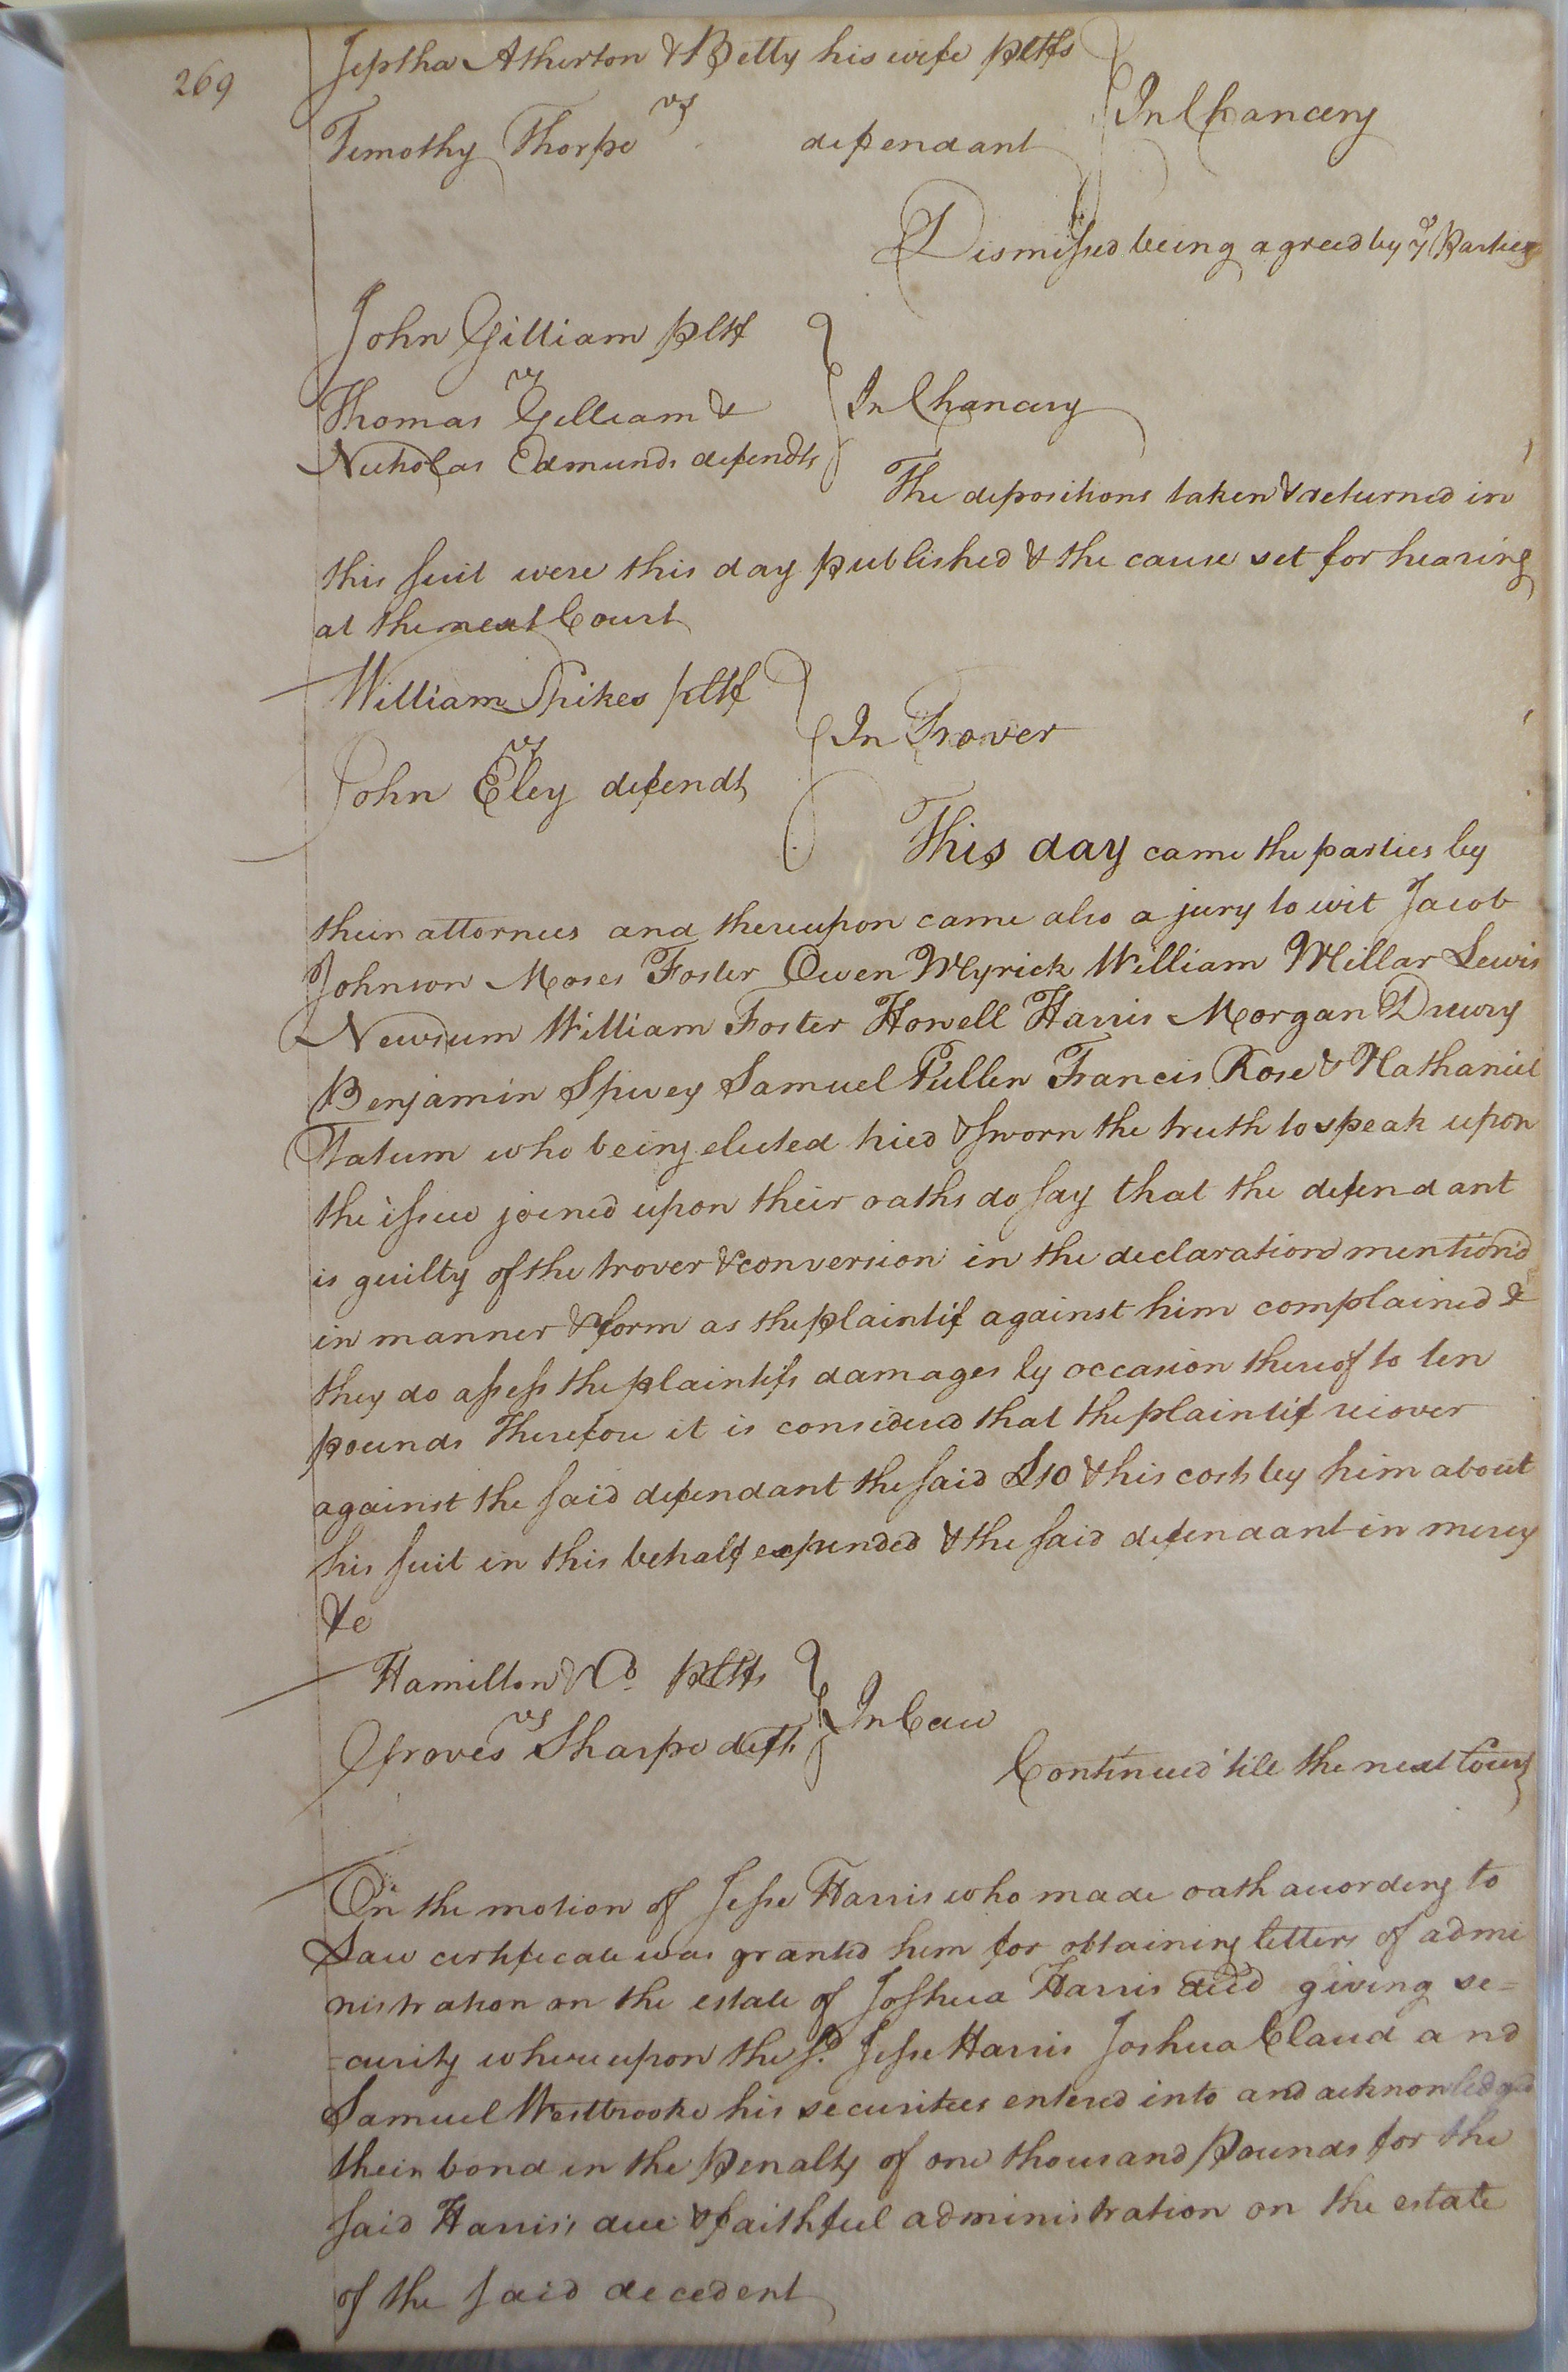 269
Jeptha Atherton & Betty his wife pltfs
vs
In Chancery
Timothy Thorpe defendant
Dismissed being agreed by ye Parties
John Gilliam pltf
vs
Thomas Gilliam & In Chancery
Nicholas Edmunds defendts
The depositions taken & returned in
this suit were this day published & the cause set for hearing
at the next Court
William Spikes pltf
vs In Trover
John Eley defendt
This day came the parties by
their attornies and thereupon came also a jury to wit Jacob
Johnson Moses Foster Owen Myrick William Millar Lewis
Newsum William Foster Howell Harris Morgan Drewry
Benjamin Spivey Samuel Pullen Francis Rose & Nathaniel
Tatum who being elected tried & sworn the truth to speak upon
the issue joined upon their oaths do say that the defendant
is guilty of the trover & conversion in the declaration mention'd
in manner & form as the plaintif against him complained &
they do assess the plaintifs damages by occasion thereof to ten
pounds Therefore it is considered that the plaintif recover
against the said defendant the said £10 & his costs by him about
his suit in this behalf expended & the said defendant in mercy
&c
Hamilton & Co. pltfs
vs In Caw
Groves Sharpe deft.
Continued till the next Court
On the motion of Jesse Harris who made oath according to
Law certificate was granted him for obtaining letters of admi
nistration on the estate of Joshua Harris decd giving se=
=curity whereupon the sd. Jesse Harris Joshua Claud and
Samuel Westbrooke his securitees entered into and acknowledged
their bond in the Penalty of one thousand Pounds for the
said Harris's due & faithful administration on the estate
of the said decedent